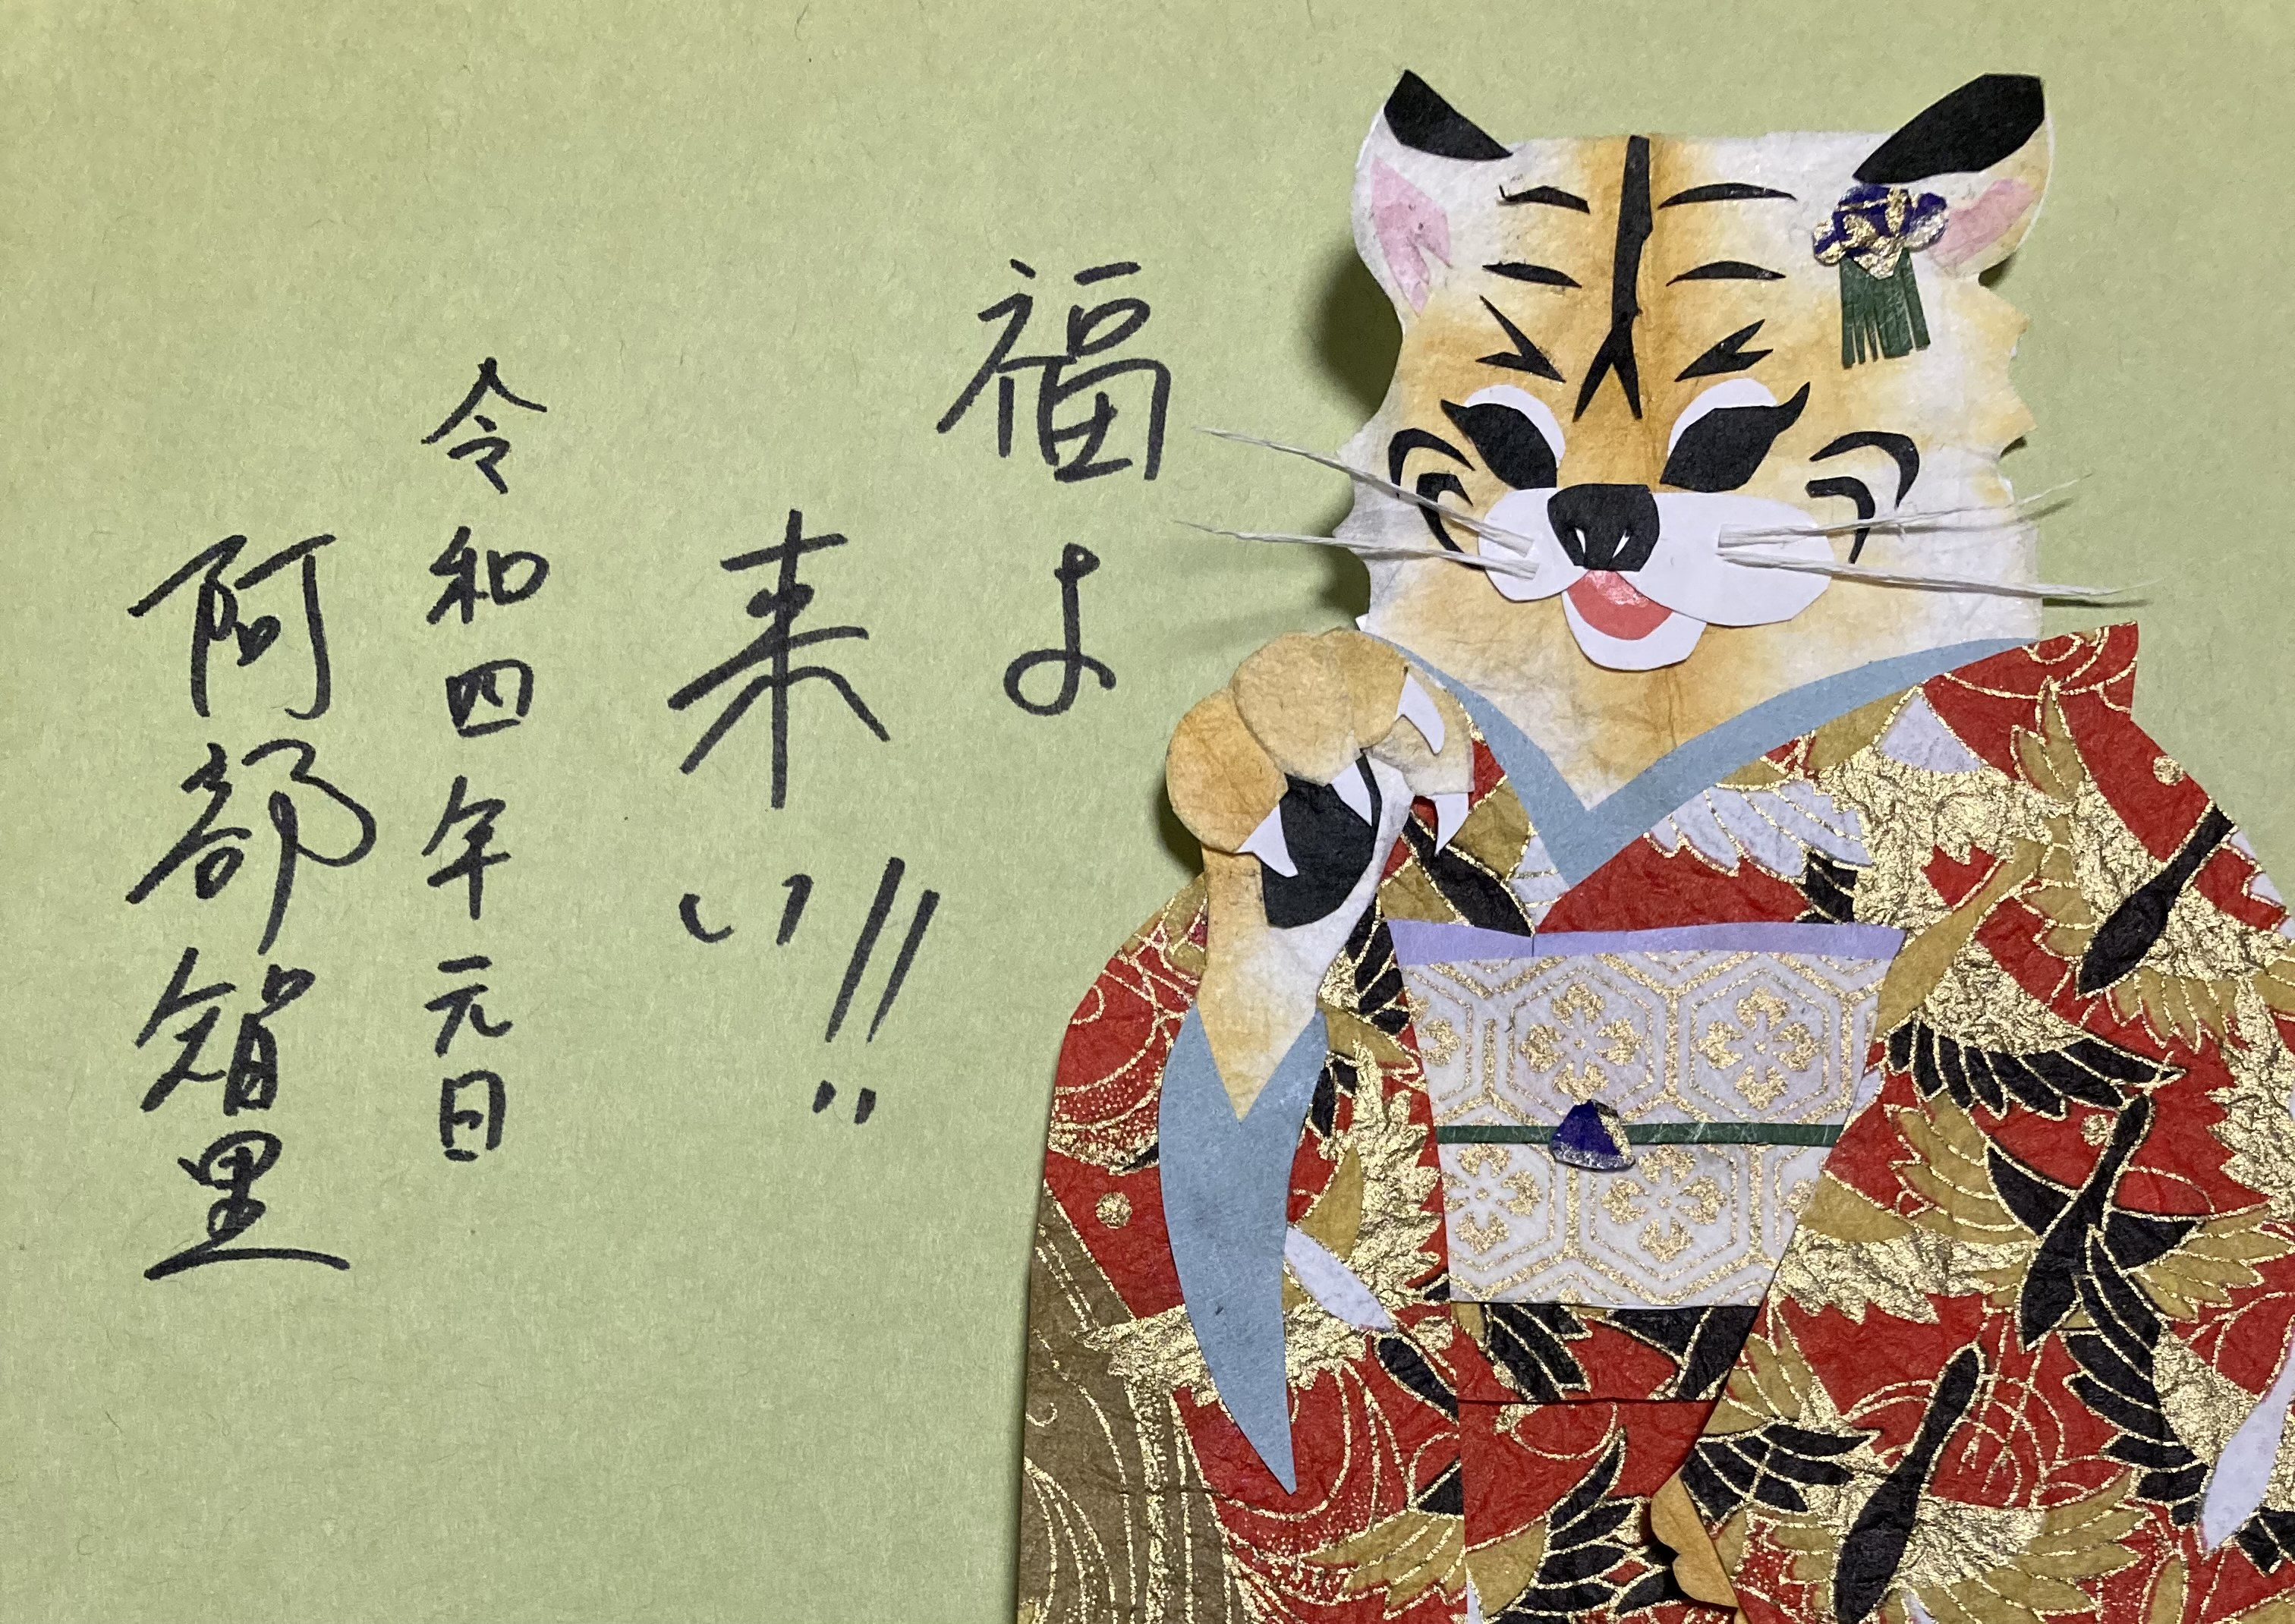 福よ
来い!!
令和四年元日
阿部智里